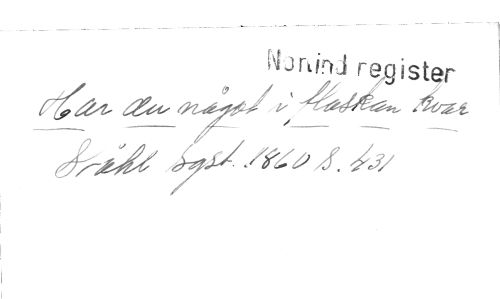 Norlind register
Har du något i flaskan kvar
Ståhl sgst. 1860 s. 431